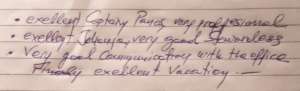 • exellent Captain Panos very professional
• exellent , very good Stewardess
• Very good communication with the office
Finally exellent vacation —